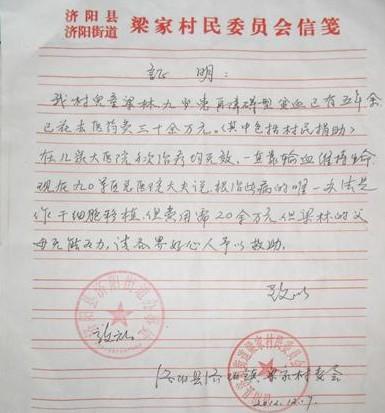 济阳县
济阳街道
梁家村民委员会信笺
证明：
我村儿童梁林九岁患再障碍型贫血已有五年余
已花去医药费三十余万元。（其中包括村民捐助）
在几家大医院多次治疗均无效，一直靠输血维持生命
现在九〇军区医院大夫说，根治此病的唯一办法是
作干细胞移植，但费用需20余万元，但梁林的父
母无能为力，请各界好心人予以救助。
致以
敬礼
济阳县济阳街道办事处
济阳县济阳镇梁家村委会
2012.12.7.